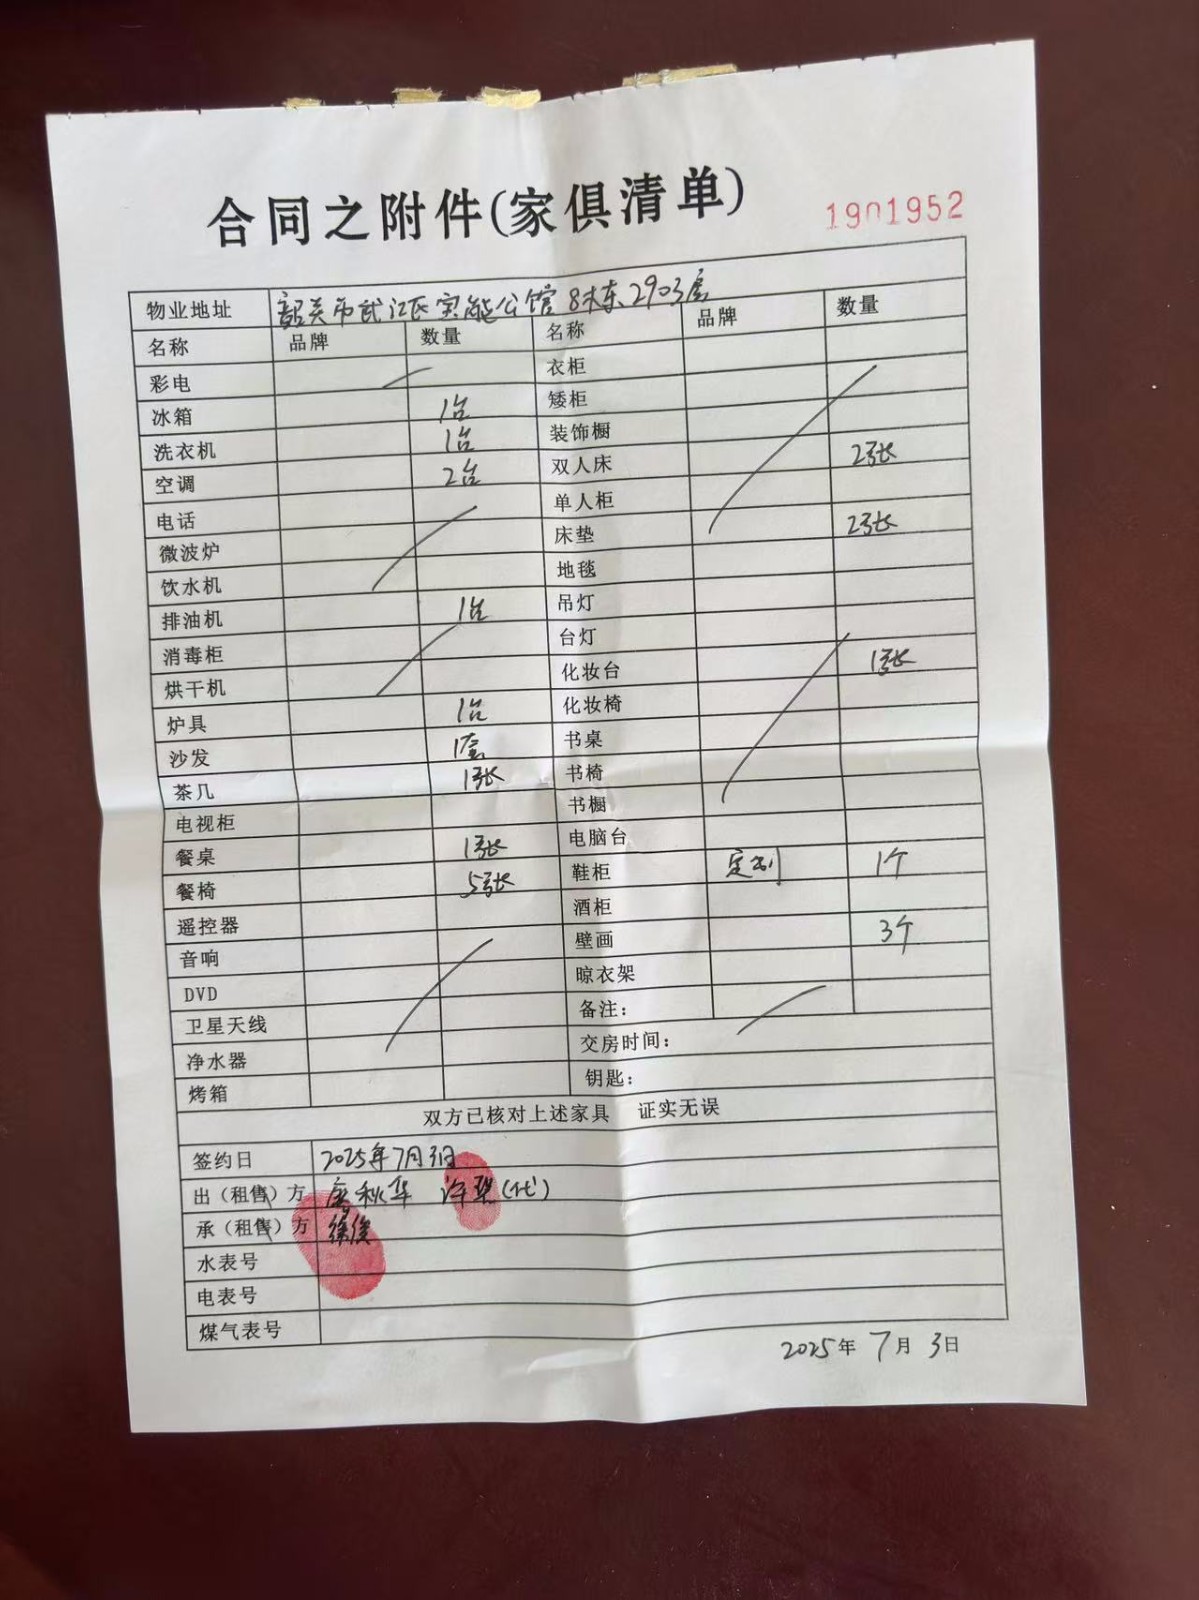 合同之附件(家俱清单)
1901952
物业地址 韶关市武江区实能公馆8栋2903房
名称 品牌 数量 名称 品牌 数量
彩电 衣柜
冰箱 1台 矮柜
洗衣机 1台 装饰橱
空调 2台 双人床 2张
电话 单人柜
微波炉 床垫 2张
饮水机 地毯
排油机 1台 吊灯
消毒柜 台灯
烘干机 化妆台 1张
炉具 1台 化妆椅
沙发 1套 书桌
茶几 1张 书椅
电视柜 书橱
餐桌 1张 电脑台
餐椅 5张 鞋柜 定制 1个
遥控器 酒柜
音响 壁画 3个
DVD 晾衣架
卫星天线 备注：
净水器 交房时间：
烤箱 钥匙：
双方已核对上述家具 证实无误
签约日 2025年7月3日
出（租售）方 秋华 许 (代)
承（租售）方 徐俊
水表号
电表号
煤气表号
2025年7月3日